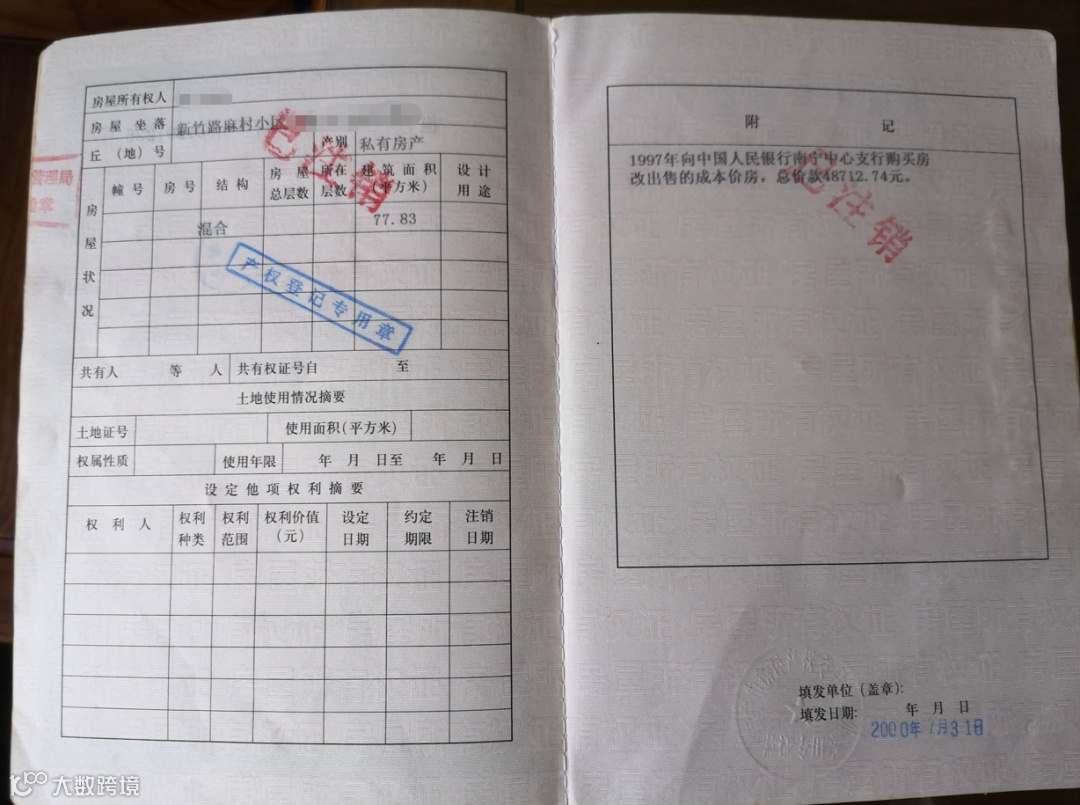 房屋所有权人
房屋坐落 新竹路麻村小区
丘（地）号 产别 私有房产
房屋状况
幢号 房号 结构 房屋总层数 所在层数 建筑面积（平方米） 设计用途
混合 77.83
已注销
产权登记专用章
管理局
章
共有人 等 人 共有权证号自 至
土地使用情况摘要
土地证号 使用面积(平方米)
权属性质 使用年限 年 月 日至 年 月 日
设定他项权利摘要
权利人 权利种类 权利范围 权利价值（元） 设定日期 约定期限 注销日期
附 记
1997年向中国人民银行南宁中心支行购买房
改出售的成本价房，总价款48712.74元。
已注销
填发单位（盖章）：
填发日期： 年 月 日
2000年1月31日
大数跨境